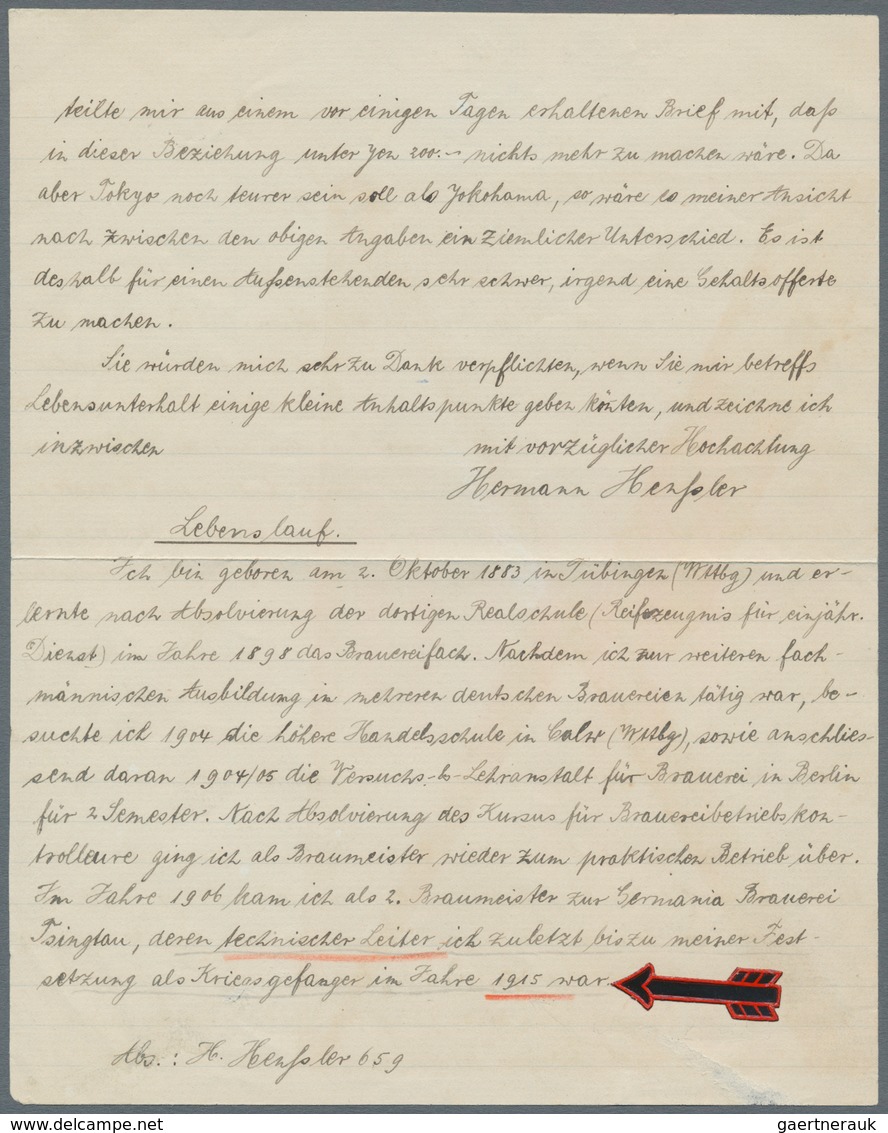 teilte mir aus einem vor einigen Tagen erhaltenen Brief mit, daß
in dieser Beziehung unter Yen 200.- nichts mehr zu machen wäre. Da
aber Tokyo noch teurer sein soll als Yokohama, so wäre es meiner Ansicht
nach zwischen den obigen Angaben ein ziemlicher Unterschied. Es ist
deshalb für einen Außenstehenden sehr schwer, irgend eine Gehaltsofferte
zu machen.
Sie würden mich sehr zu Dank verpflichten, wenn Sie mir betreffs
Lebensunterhalt einige kleine Anhaltspunkte geben könten, und zeichne ich
inzwischen mit vorzüglicher Hochachtung
Hermann Henßler
Lebenslauf.
Ich bin geboren am 2. Oktober 1883 in Tübingen (Wttbg) und er-
lernte nach Absolvierung der dortigen Realschule (Reifezeugnis für einjähr.
Dienst) im Jahre 1898 das Brauereifach. Nachdem ich zur weiteren fach-
männischen Ausbildung in mehreren deutschen Brauereien tätig war, be-
suchte ich 1904 die höhere Handelsschule in Calw (Wttbg), sowie anschlies-
send daran 1904/05 die Versuchs- & Lehranstalt für Brauerei in Berlin
für 2 Semester. Nach Absolvierung des Kursus für Brauereibetriebskon-
trolleure ging ich als Braumeister wieder zum praktischen Betrieb über.
Im Jahre 1906 kam ich als 2. Braumeister zur Germania Brauerei
Tsingtau, deren technischer Leiter ich zuletzt bis zu meiner Fest-
setzung als Kriegsgefanger im Jahre 1915 war.
Abs.: H. Henßler 659
gaertnerauk